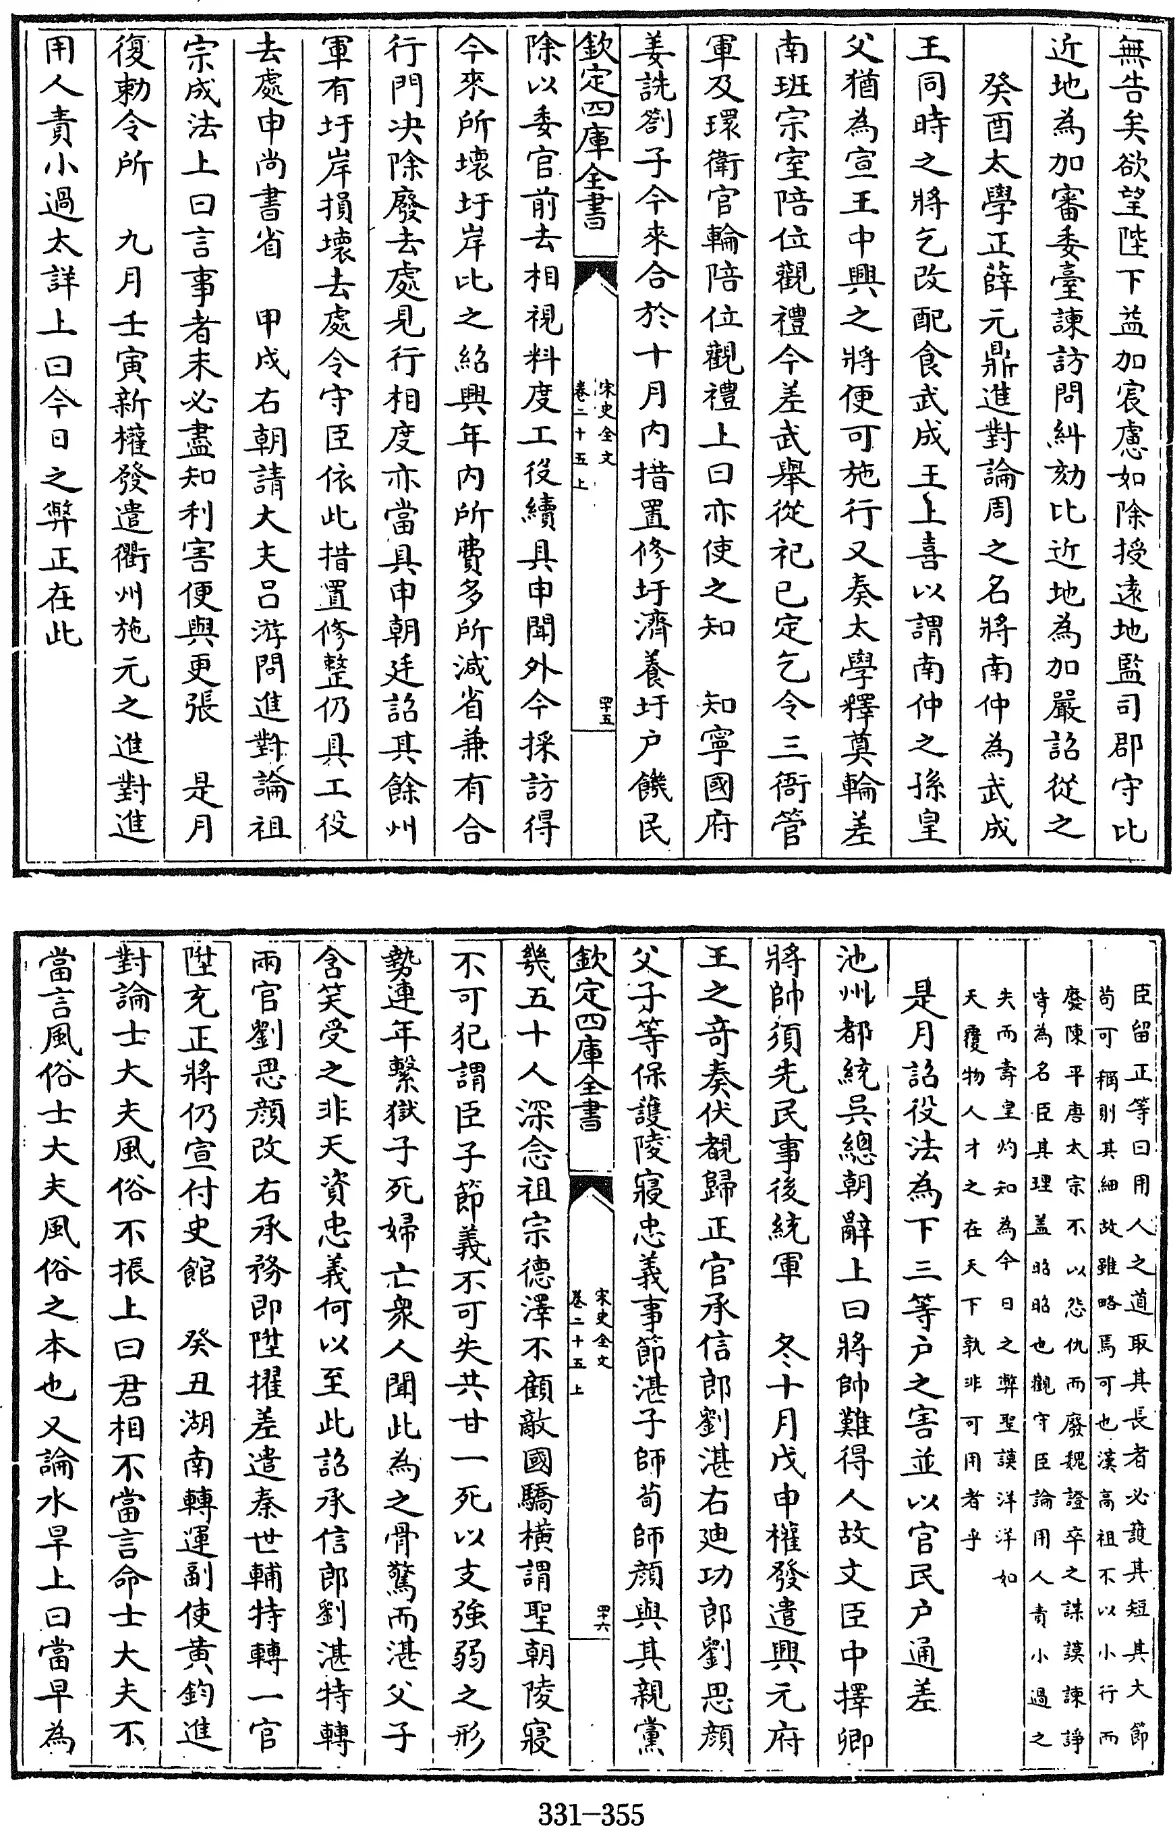 無告矣欲望陛下益加宸慮如除授遠地監司郡守比
近地為加審委臺諫訪問糾劾比近地為加嚴詔從之
癸酉太學正薛元鼎進對論周之名將南仲為武成
王同時之將乞改配食武成王上喜以謂南仲之孫皇
父猶為宣王中興之將便可施行又奏太學釋奠輪差
南班宗室陪位觀禮今差武舉從祀已定乞令三衙管
軍及環衛官輪陪位觀禮上曰亦使之知　知寧國府
姜詵劄子今來合於十月內措置修圩濟養圩户饑民
欽定四庫全書
宋史全文
卷二十五上
四十五
除以委官前去相視料度工役續具申聞外今採訪得
今來所壞圩岸比之紹興年內所費多所減省兼有合
行門决除廢去處見行相度亦當具申朝廷詔其餘州
軍有圩岸損壞去處令守臣依此措置修整仍具工役
去處申尚書省　甲戌右朝請大夫吕游問進對論祖
宗成法上曰言事者未必盡知利害便與更張　是月
復勅令所　九月壬寅新權發遣衢州施元之進對進
用人責小過太詳上曰今日之弊正在此
臣留正等曰用人之道取其長者必護其短其大節
苟可稱則其細故雖略焉可也漢高祖不以小行而
廢陳平唐太宗不以怨仇而廢魏證卒之謀謨諫諍
皆為名臣其理盖昭昭也觀守臣論用人責小過之
失而壽皇灼知為今日之弊聖謨洋洋如
天覆物人才之在天下孰非可用者乎
是月詔役法為下三等户之害並以官民户通差
池州都統吳總朝辭上曰將帥難得人故文臣中擇卿
將帥須先民事後統軍　冬十月戊申權發遣興元府
王之奇奏伏覩歸正官承信郎劉湛右廸功郎劉思顔
父子等保護陵寢忠義事節湛子師荀師顔與其親黨
欽定四庫全書
宋史全文
卷二十五上
四十六
幾五十人深念祖宗德澤不顧敵國驕橫謂聖朝陵寢
不可犯謂臣子節義不可失共甘一死以支強弱之形
勢連年繫獄子死婦亡衆人聞此為之骨驚而湛父子
含笑受之非天資忠義何以至此詔承信郎劉湛特轉
兩官劉思顔改右承務即陞擢差遣秦世輔特轉一官
陞充正將仍宣付史館　癸丑湖南轉運副使黄鈞進
對論士大夫風俗不振上曰君相不當言命士大夫不
當言風俗士大夫風俗之本也又論水旱上曰當早為
331-355